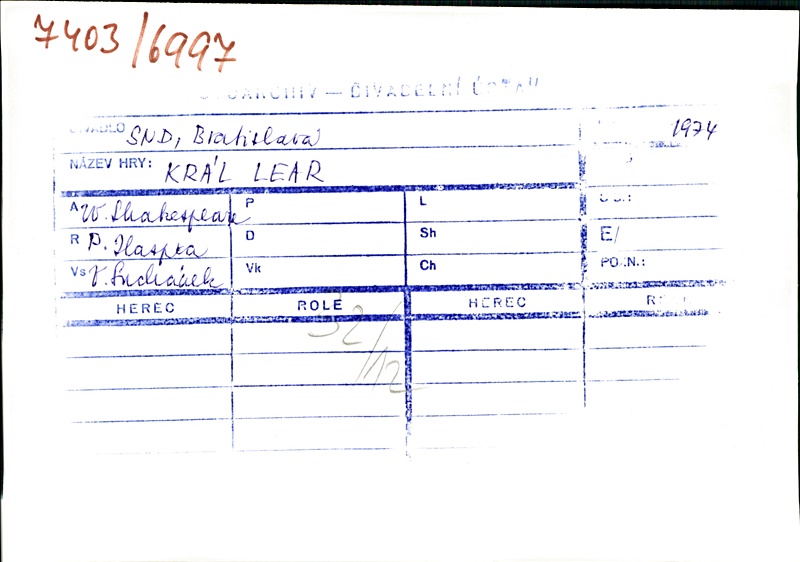 7403/6997
ARCHIV — DIVADELNÍ ÚSTAV
DIVADLO SND, Bratislava 1974
NÁZEV HRY: KRÁL LEAR
A W. Shakespeare P L
R P. Haspra D Sh E/
Vs V. Suchánek Vk Ch POZN.:
HEREC ROLE HEREC
32/
/12